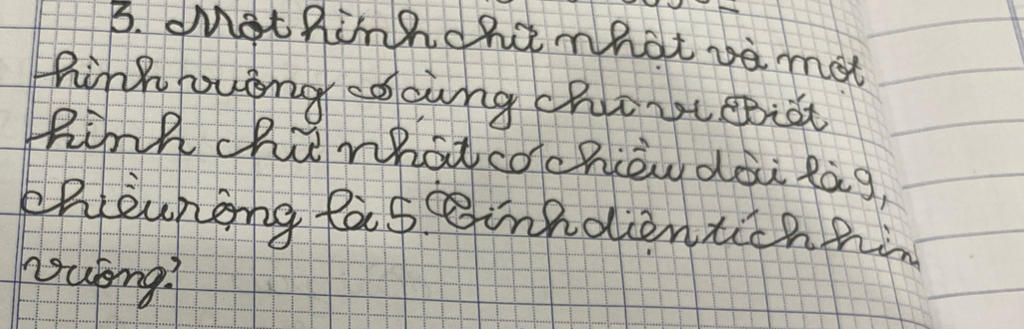 3. Một hình chữ nhật và một
hình vuông có cùng chu vi biết
hình chữ nhật có chiều dài là 9,
chiều rộng là 5. Tính diện tích hìn
vuông?